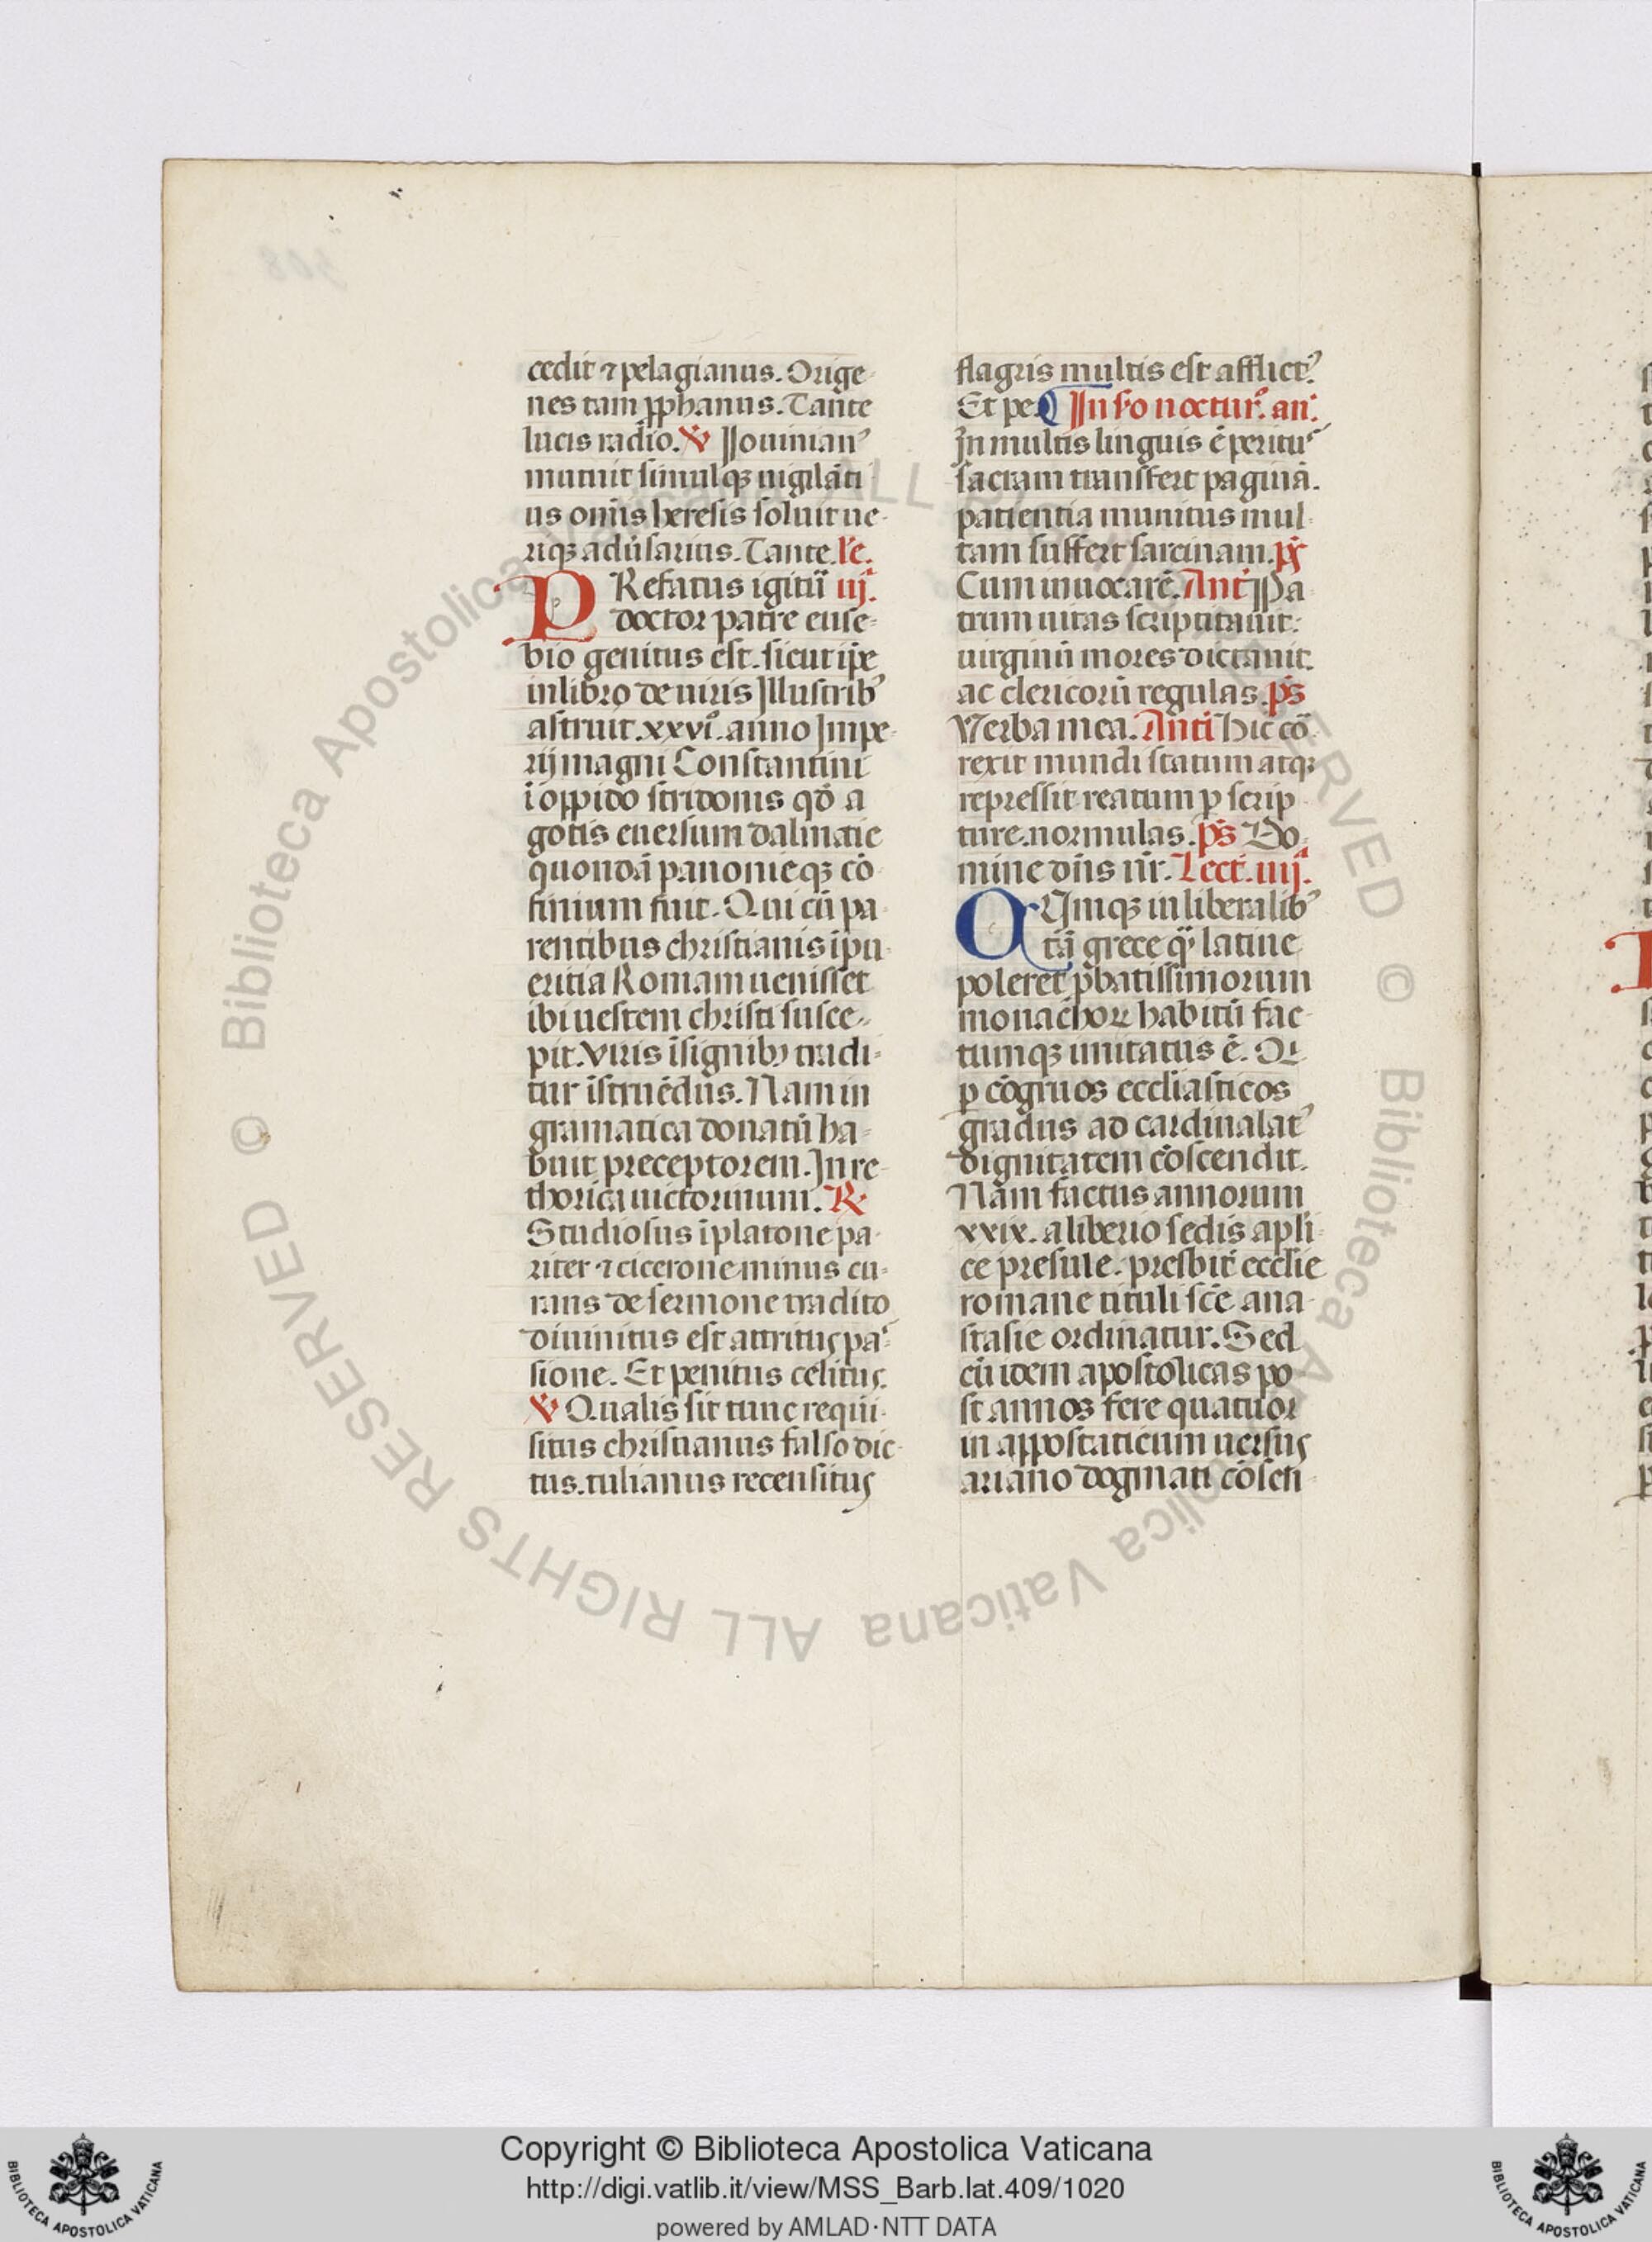 cedit ⁊ pelagianus. Orige-
nes tam ꝓphanus. Tante
lucis radio. ℣ Iouinianꝰ
mutuit simulqꝫ uigilāti
us om̄is heresis soluit ne-
riqꝫ adűsarius. Tante. le.
PRefatus igitū iij.ᵃ
doctor patre euse-
bio genitus est. sicut ip̄e
in libro de uiris Illustribꝰ
astruit. xxvi.° anno Impe-
rij magni Constantini
ī oppido stridonis qđ a
gotis euersum dalmatie
quondā panonieqꝫ cō-
finium fuit. Qui cū pa-
rentibus christianis ī pu-
eritia Romam uenisset
ibi uestem christi susce-
pit. Viris īsignibꝫ tradi-
tur īstruēdus. Nam in
gramatica donatū ha-
buit preceptorem. In re-
thorica uictorinum. ℟.
Studiosus ī platone pa-
riter ⁊ cicerone minus cu-
rans de sermone tradito
diuinitus est attritus pas-
sione. Et penitus celitus.
℣ Qualis sit tunc requi-
situs christianus falso dic-
tus. tulianus recensitus
flagris multis est afflictꝰ
Et pe. In ſ°o noctur°. an̄.
In multis linguis ē peritus
sacram transfert paginā.
patientia munitus mul-
tam suffert sarcinam. pṡ
Cum inuocarē. Ant̄ Pa-
trum uitas scriptitauit.
uirginū mores dictauit.
ac clericorū regulas. pṡ
Verba mea. Ant̄ Hic cō-
rexit mundi statum atqꝫ
repressit reatum ꝑ scrip-
ture normulas. pṡ Do-
mine dn̄s nr̄. Lect. iiij.ᵃ
QUmqꝫ in liberalibꝰ
tā grece qͣ latine
poleret ꝓbatissimorum
monachoꝝ habitū fac-
tumqꝫ imitatus ē. Qi
ꝑ cōgruos eccliasticos
gradus ad cardinalatꝰ
dignitatem cōscendit.
Nam factus annorum
xxix. a liberio sedis apli-
ce presule. presbit̄ ecclie
romane tituli scē ana-
stasie ordinatur. Sed
cū idem apostolicas po-
st annos fere quatuor
in appostaticum uersus
ariano dogmati cōseti-
Copyright © Biblioteca Apostolica Vaticana
http://digi.vatlib.it/view/MSS_Barb.lat.409/1020
powered by AMLAD·NTT DATA